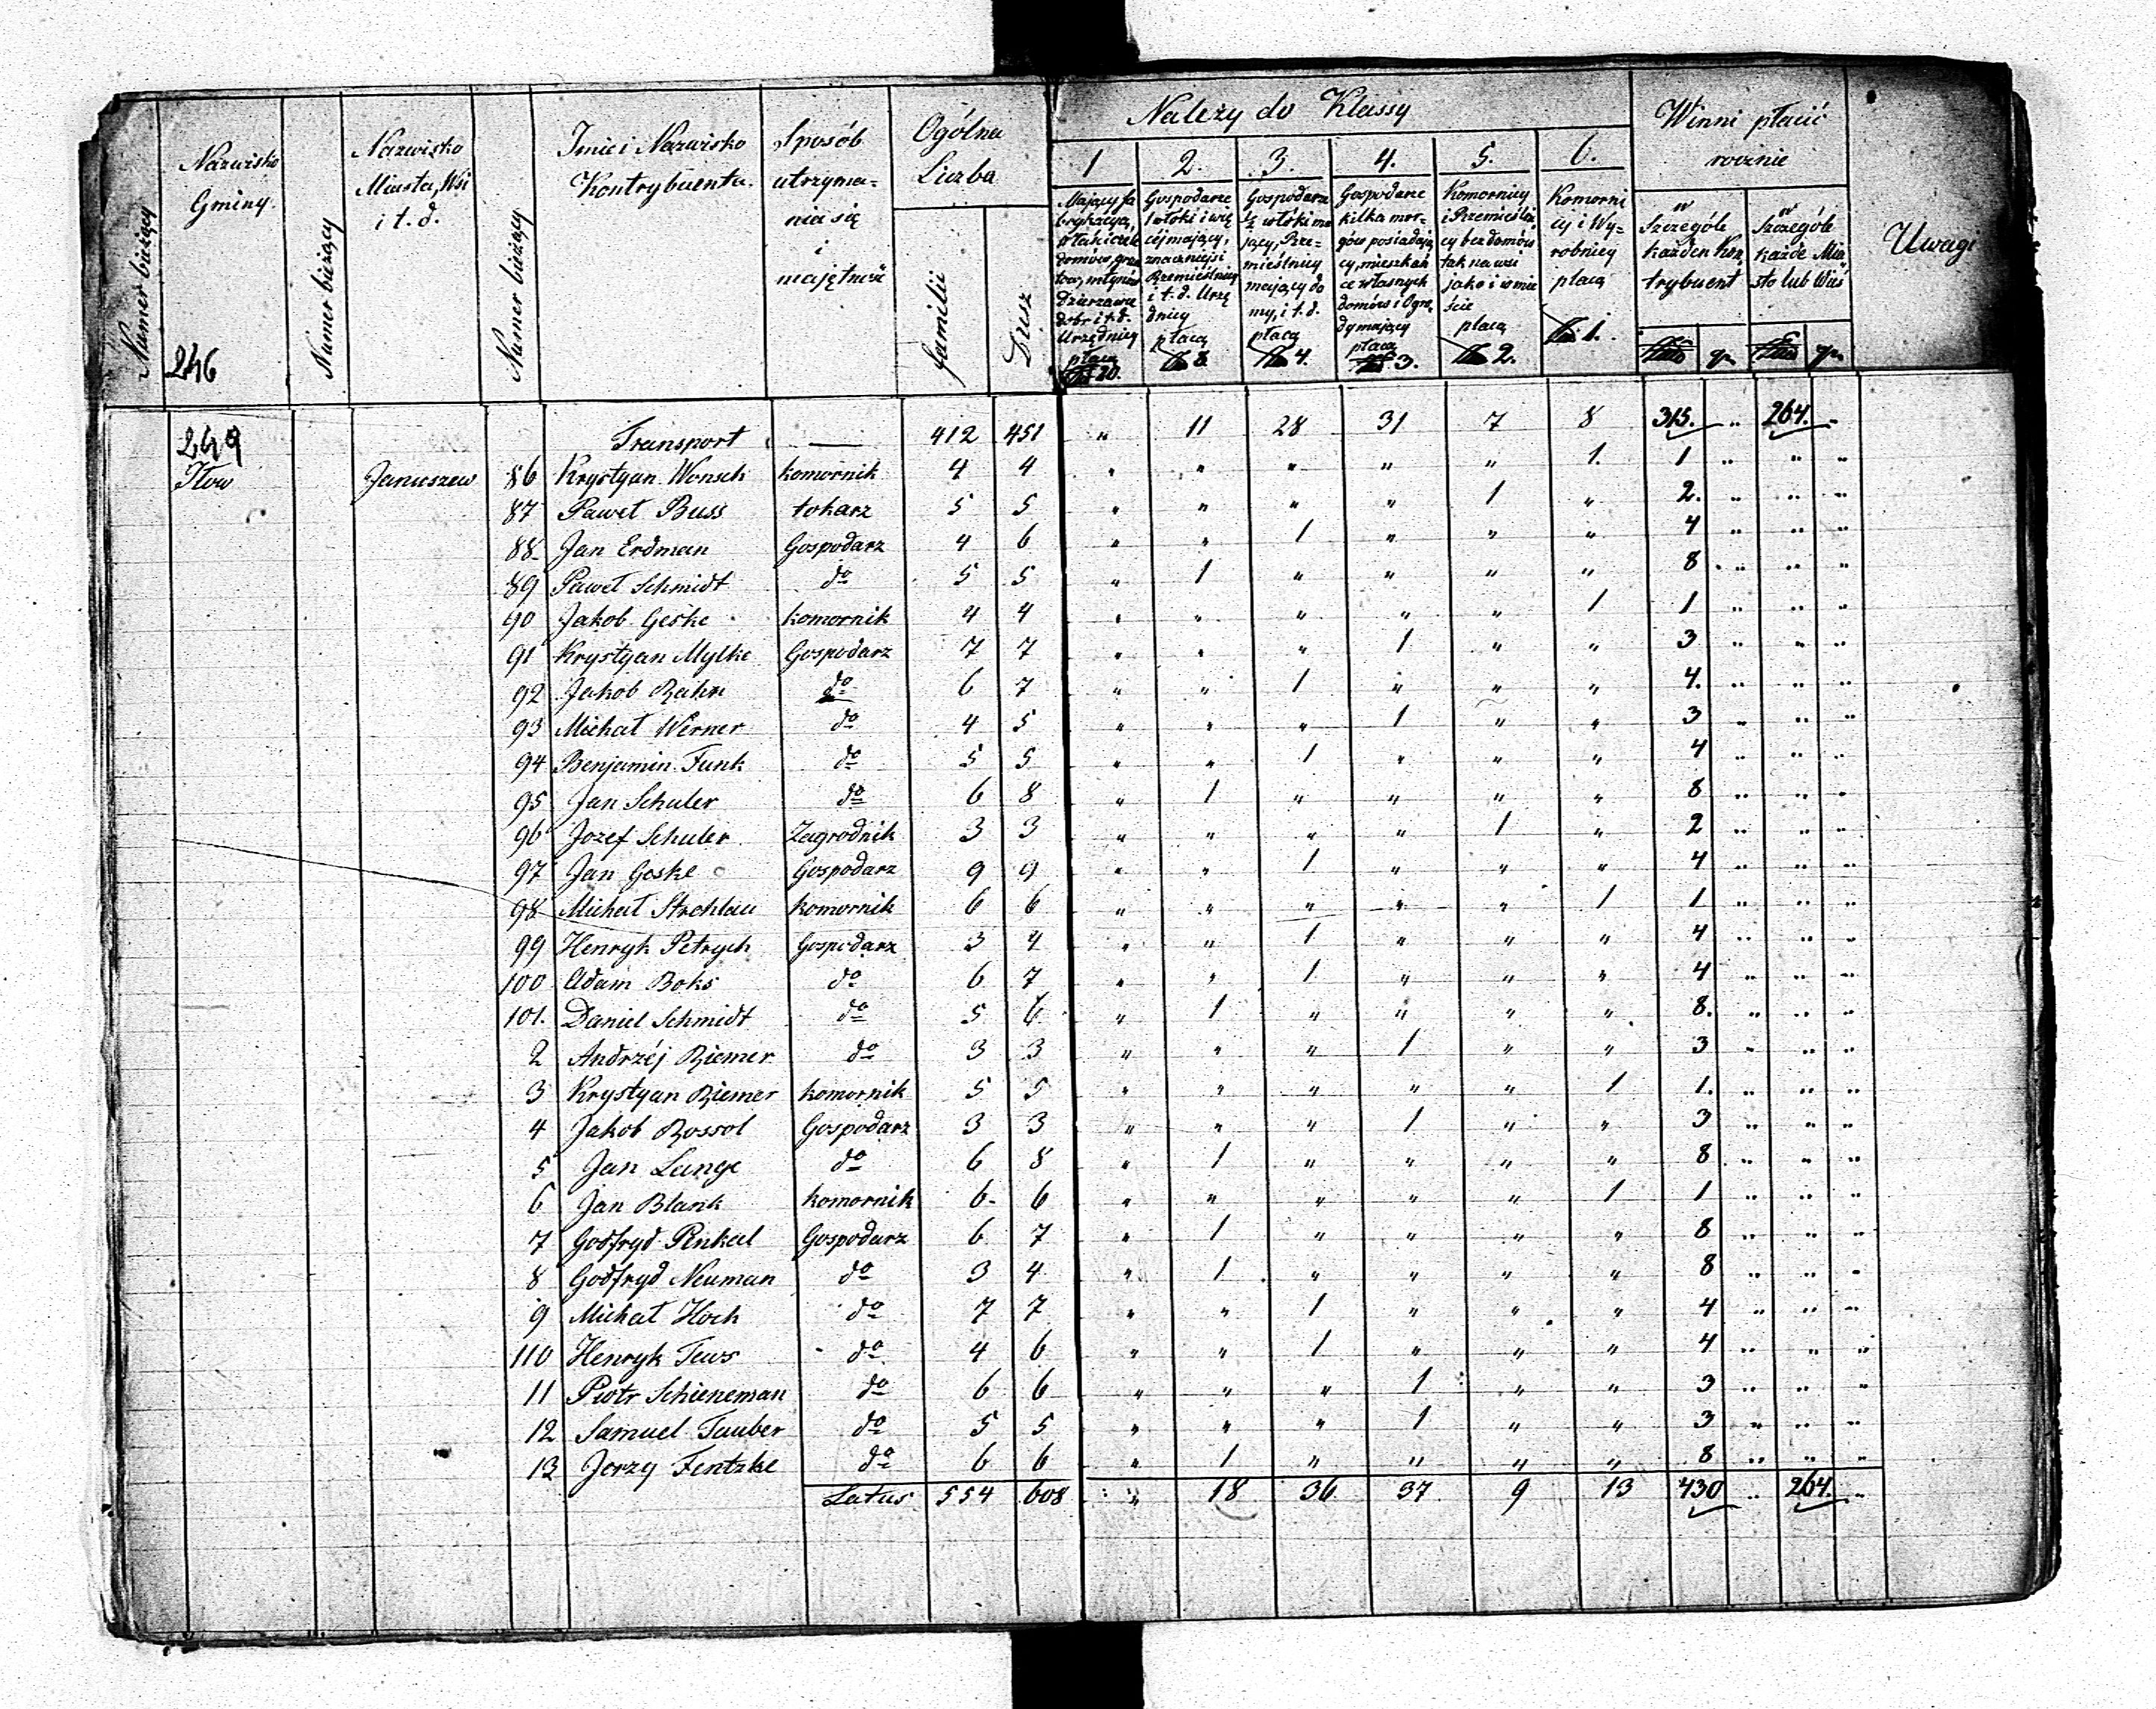 Numer bieżący
Nazwisko
Gminy.
246
Numer bieżący
Nazwisko
Miasta, Wsi
i t. d.
Numer bieżący
Imie i Nazwisko
Kontrybuenta.
Sposób
utrzyma=
nia się
i
majętność
Ogólna
Liczba
familii
Dusz
Należy do Klassy
1
Mający fa
brykacyą,
domów,
młynów
Dzierzawcy
dobr i t. d.
Urzędnicy
płacą
20.
2.
Gospodarze
1 włoki i wię
céj mający,
znaczniejsi
Rzemieślnicy
i t. d. Urzę
dnicy
płacą
8
3.
Gospodarze
½ włóki ma
jący, Rze=
mieślnicy
mający do
my, i t. d.
płacą
4.
4.
Gospodarze
kilka mor=
gów posiadają
cy, mieszkań
ce własnych
domów i Ogro,
dy mający
płacą
3.
5.
Komornicy
i Rzemieślni,
cy bez domów
tak na wsi
jako i w mie
ście
płacą
2.
6.
Komorni
cy i Wy=
robnicy
płacą
1.
Winni płacić
rocznie
w
Szczególe
każden Kon,
trybuent
gr.
w
Szczególe
każde Mia
sto lub Wieś
gr.
Uwagi
249 Transport — 412 451 „ 11 28 31 7 8 315. „ 264. „
Iłow Januszew 86 Krystyan Wonsch komornik 4 4 „ „ „ „ „ 1. 1 „ „ „
87 Paweł Buss tokarz 5 5 „ „ „ „ 1 „ 2. „ „ „
88 Jan Erdman Gospodarz 4 6 „ „ 1 „ „ „ 4 „ „ „
89 Paweł Schmidt do 5 5 „ 1 „ „ „ „ 8 „ „ „
90 Jakob Geske komornik 4 4 „ „ „ „ „ 1 1 „ „ „
91 Krystyan Mylke Gospodarz 7 7 „ „ „ 1 „ „ 3 „ „ „
92 Jakob Rahn do 6 7 „ „ 1 „ „ „ 4. „ „ „
93 Michał Werner do 4 5 „ „ „ 1 „ „ 3 „ „ „
94 Benjamin Funk do 5 5 „ „ 1 „ „ „ 4 „ „ „
95 Jan Schuler do 6 8 „ 1 „ „ „ „ 8 „ „ „
96 Jozef Schuler Zagrodnik 3 3 „ „ „ „ 1 „ 2 „ „ „
97 Jan Geske Gospodarz 9 9 „ „ 1 „ „ „ 4 „ „ „
98 Michał Strehlau komornik 6 6 „ „ „ „ „ 1 1 „ „ „
99 Henryk Petrych Gospodarz 3 4 „ „ 1 „ „ „ 4 „ „ „
100 Adam Boks do 6 7 „ „ 1 „ „ „ 4 „ „ „
101. Daniel Schmidt do 5 6 „ 1 „ „ „ „ 8. „ „ „
2 Andrzéj Riemer do 3 3 „ „ „ 1 „ „ 3 „ „ „
3 Krystyan Riemer komornik 5 5 „ „ „ „ „ 1 1. „ „ „
4 Jakob Rossol Gospodarz 3 3 „ „ „ 1 „ „ 3 „ „ „
5 Jan Lange do 6 8 „ 1 „ „ „ „ 8 „ „ „
6 Jan Blank komornik 6 6 „ „ „ „ „ 1 1 „ „ „
7 Godfryd Pinkal Gospodarz 6 7 „ 1 „ „ „ „ 8 „ „ „
8 Godfryd Neuman do 3 4 „ 1 „ „ „ „ 8 „ „ „
9 Michał Hoch do 7 7 „ „ 1 „ „ „ 4 „ „ „
110 Henryk Tews do 4 6 „ „ 1 „ „ „ 4 „ „ „
11 Piotr Schieneman do 6 6 „ „ „ 1 „ „ 3 „ „ „
12 Samuel Tauber do 5 5 „ „ „ 1 „ „ 3 „ „ „
13 Jerzy Fentzke do 6 6 „ 1 „ „ „ „ 8 „ „ „
Latus 554 608 „ 18 36 37 9 13 430 „ 264. „